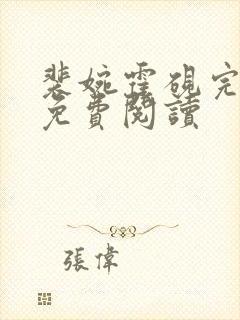 裴婉霍硯完
免費閱讀
張偉